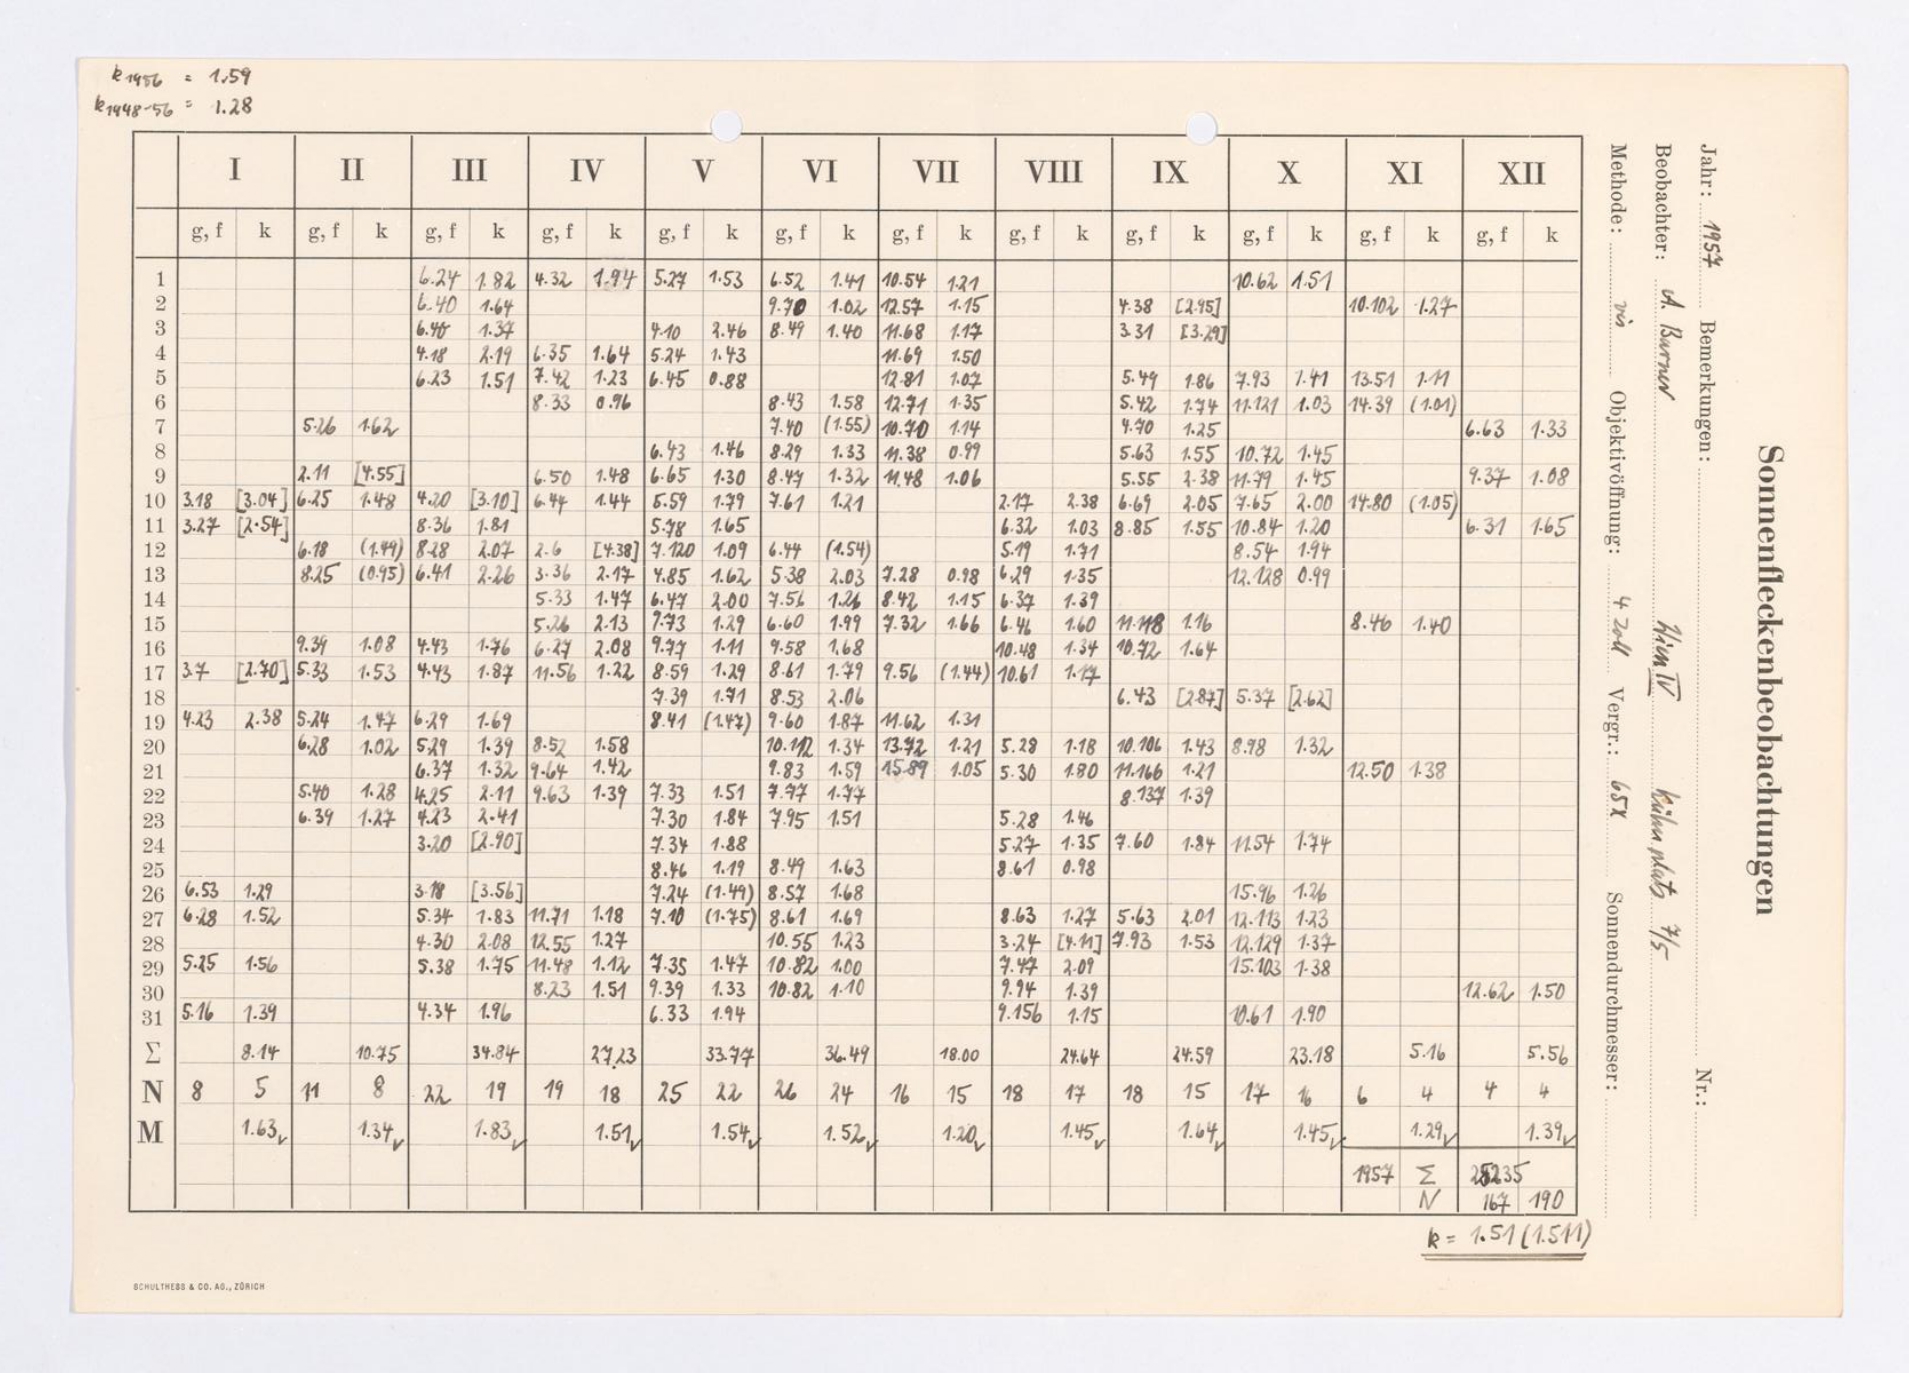 k1956 = 1.59
k1948-56 = 1.28
I II III IV V VI VII VIII IX X XI XII
g, f k g, f k g, f k g, f k g, f k g, f k g, f k g, f k g, f k g, f k g, f k g, f k
1 6.24 1.82 4.32 1.94 5.27 1.53 6.52 1.41 10.54 1.21 10.62 1.51
2 6.40 1.64 9.70 1.02 12.57 1.15 4.38 [2.95] 10.102 1.27
3 6.40 1.37 4.10 2.46 8.49 1.40 11.68 1.17 3.31 [3.29]
4 4.18 2.19 6.35 1.64 5.24 1.43 11.69 1.50
5 6.23 1.51 7.42 1.23 6.45 0.88 12.81 1.07 5.49 1.86 7.93 1.41 13.51 1.11
6 8.33 0.96 8.43 1.58 12.71 1.35 5.42 1.74 11.121 1.03 14.39 (1.01)
7 5.26 1.62 7.40 (1.55) 10.70 1.14 4.70 1.25 6.63 1.33
8 6.43 1.46 8.29 1.33 11.38 0.99 5.63 1.55 10.72 1.45
9 2.11 [4.55] 6.50 1.48 6.65 1.30 8.47 1.32 11.48 1.06 5.55 2.38 11.79 1.45 9.37 1.08
10 3.18 [3.04] 6.25 1.48 4.20 [3.10] 6.44 1.44 5.59 1.79 7.61 1.21 2.17 2.38 6.69 2.05 7.65 2.00 14.80 (1.05)
11 3.27 [2.54] 8.36 1.81 5.78 1.65 6.32 1.03 8.85 1.55 10.84 1.20 6.31 1.65
12 6.18 (1.49) 8.28 2.07 2.6 [4.38] 7.120 1.09 6.44 (1.54) 5.19 1.71 8.54 1.94
13 8.25 (0.95) 6.41 2.26 3.36 2.17 4.85 1.62 5.38 2.03 7.28 0.98 6.29 1.35 12.128 0.99
14 5.33 1.47 6.47 2.00 7.56 1.26 8.42 1.15 6.37 1.39
15 5.26 2.13 7.73 1.29 6.60 1.99 7.32 1.66 6.46 1.60 11.118 1.16 8.46 1.40
16 9.39 1.08 4.43 1.76 6.27 2.08 9.77 1.11 9.58 1.68 10.48 1.34 10.72 1.64
17 3.7 [2.70] 5.33 1.53 4.43 1.87 11.56 1.22 8.59 1.29 8.61 1.79 9.56 (1.44) 10.61 1.17
18 7.39 1.71 8.53 2.06 6.43 [2.87] 5.37 [2.62]
19 4.23 2.38 5.24 1.47 6.29 1.69 8.41 (1.47) 9.60 1.87 11.62 1.31
20 6.28 1.02 5.29 1.39 8.52 1.58 10.112 1.34 13.72 1.21 5.28 1.18 10.106 1.43 8.98 1.32
21 6.37 1.32 9.64 1.42 9.83 1.59 15.89 1.05 5.30 1.80 11.166 1.21 12.50 1.38
22 5.40 1.28 4.25 2.11 9.63 1.39 7.33 1.51 7.77 1.77 8.137 1.39
23 6.39 1.27 4.23 2.41 7.30 1.84 7.95 1.51 5.28 1.46
24 3.20 [2.90] 7.34 1.88 5.27 1.35 7.60 1.84 11.54 1.74
25 8.46 1.19 8.49 1.63 8.61 0.98
26 6.53 1.29 3.18 [3.56] 7.24 (1.49) 8.57 1.68 15.96 1.26
27 6.28 1.52 5.34 1.83 11.71 1.18 7.10 (1.75) 8.61 1.69 8.63 1.27 5.63 2.01 12.113 1.23
28 4.30 2.08 12.55 1.27 10.55 1.23 3.24 [4.11] 7.93 1.53 12.129 1.37
29 5.25 1.56 5.38 1.75 11.48 1.12 7.35 1.47 10.82 1.00 7.47 2.09 15.103 1.38
30 8.23 1.51 9.39 1.33 10.82 1.10 9.94 1.39 12.62 1.50
31 5.16 1.39 4.34 1.96 6.33 1.94 9.156 1.15 10.61 1.90
Σ 8.14 10.75 34.84 27.23 33.77 36.49 18.00 24.64 24.59 23.18 5.16 5.56
N 8 5 11 8 22 19 19 18 25 22 26 24 16 15 18 17 18 15 17 16 6 4 4 4
M 1.63✓ 1.34✓ 1.83✓ 1.51✓ 1.54✓ 1.52✓ 1.20✓ 1.45✓ 1.64✓ 1.45✓ 1.29✓ 1.39✓
1957 Σ
N 167 190
k = 1.51 (1.511)
SCHULTHESS & CO. AG., ZÜRICH
Sonnenfleckenbeobachtungen
Jahr: 1957 Bemerkungen: Nr.:
Beobachter: A. Burner Wien IV 7/5
Methode: vis Objektivöffnung: 4 Zoll Vergr.: 65x Sonnendurchmesser: